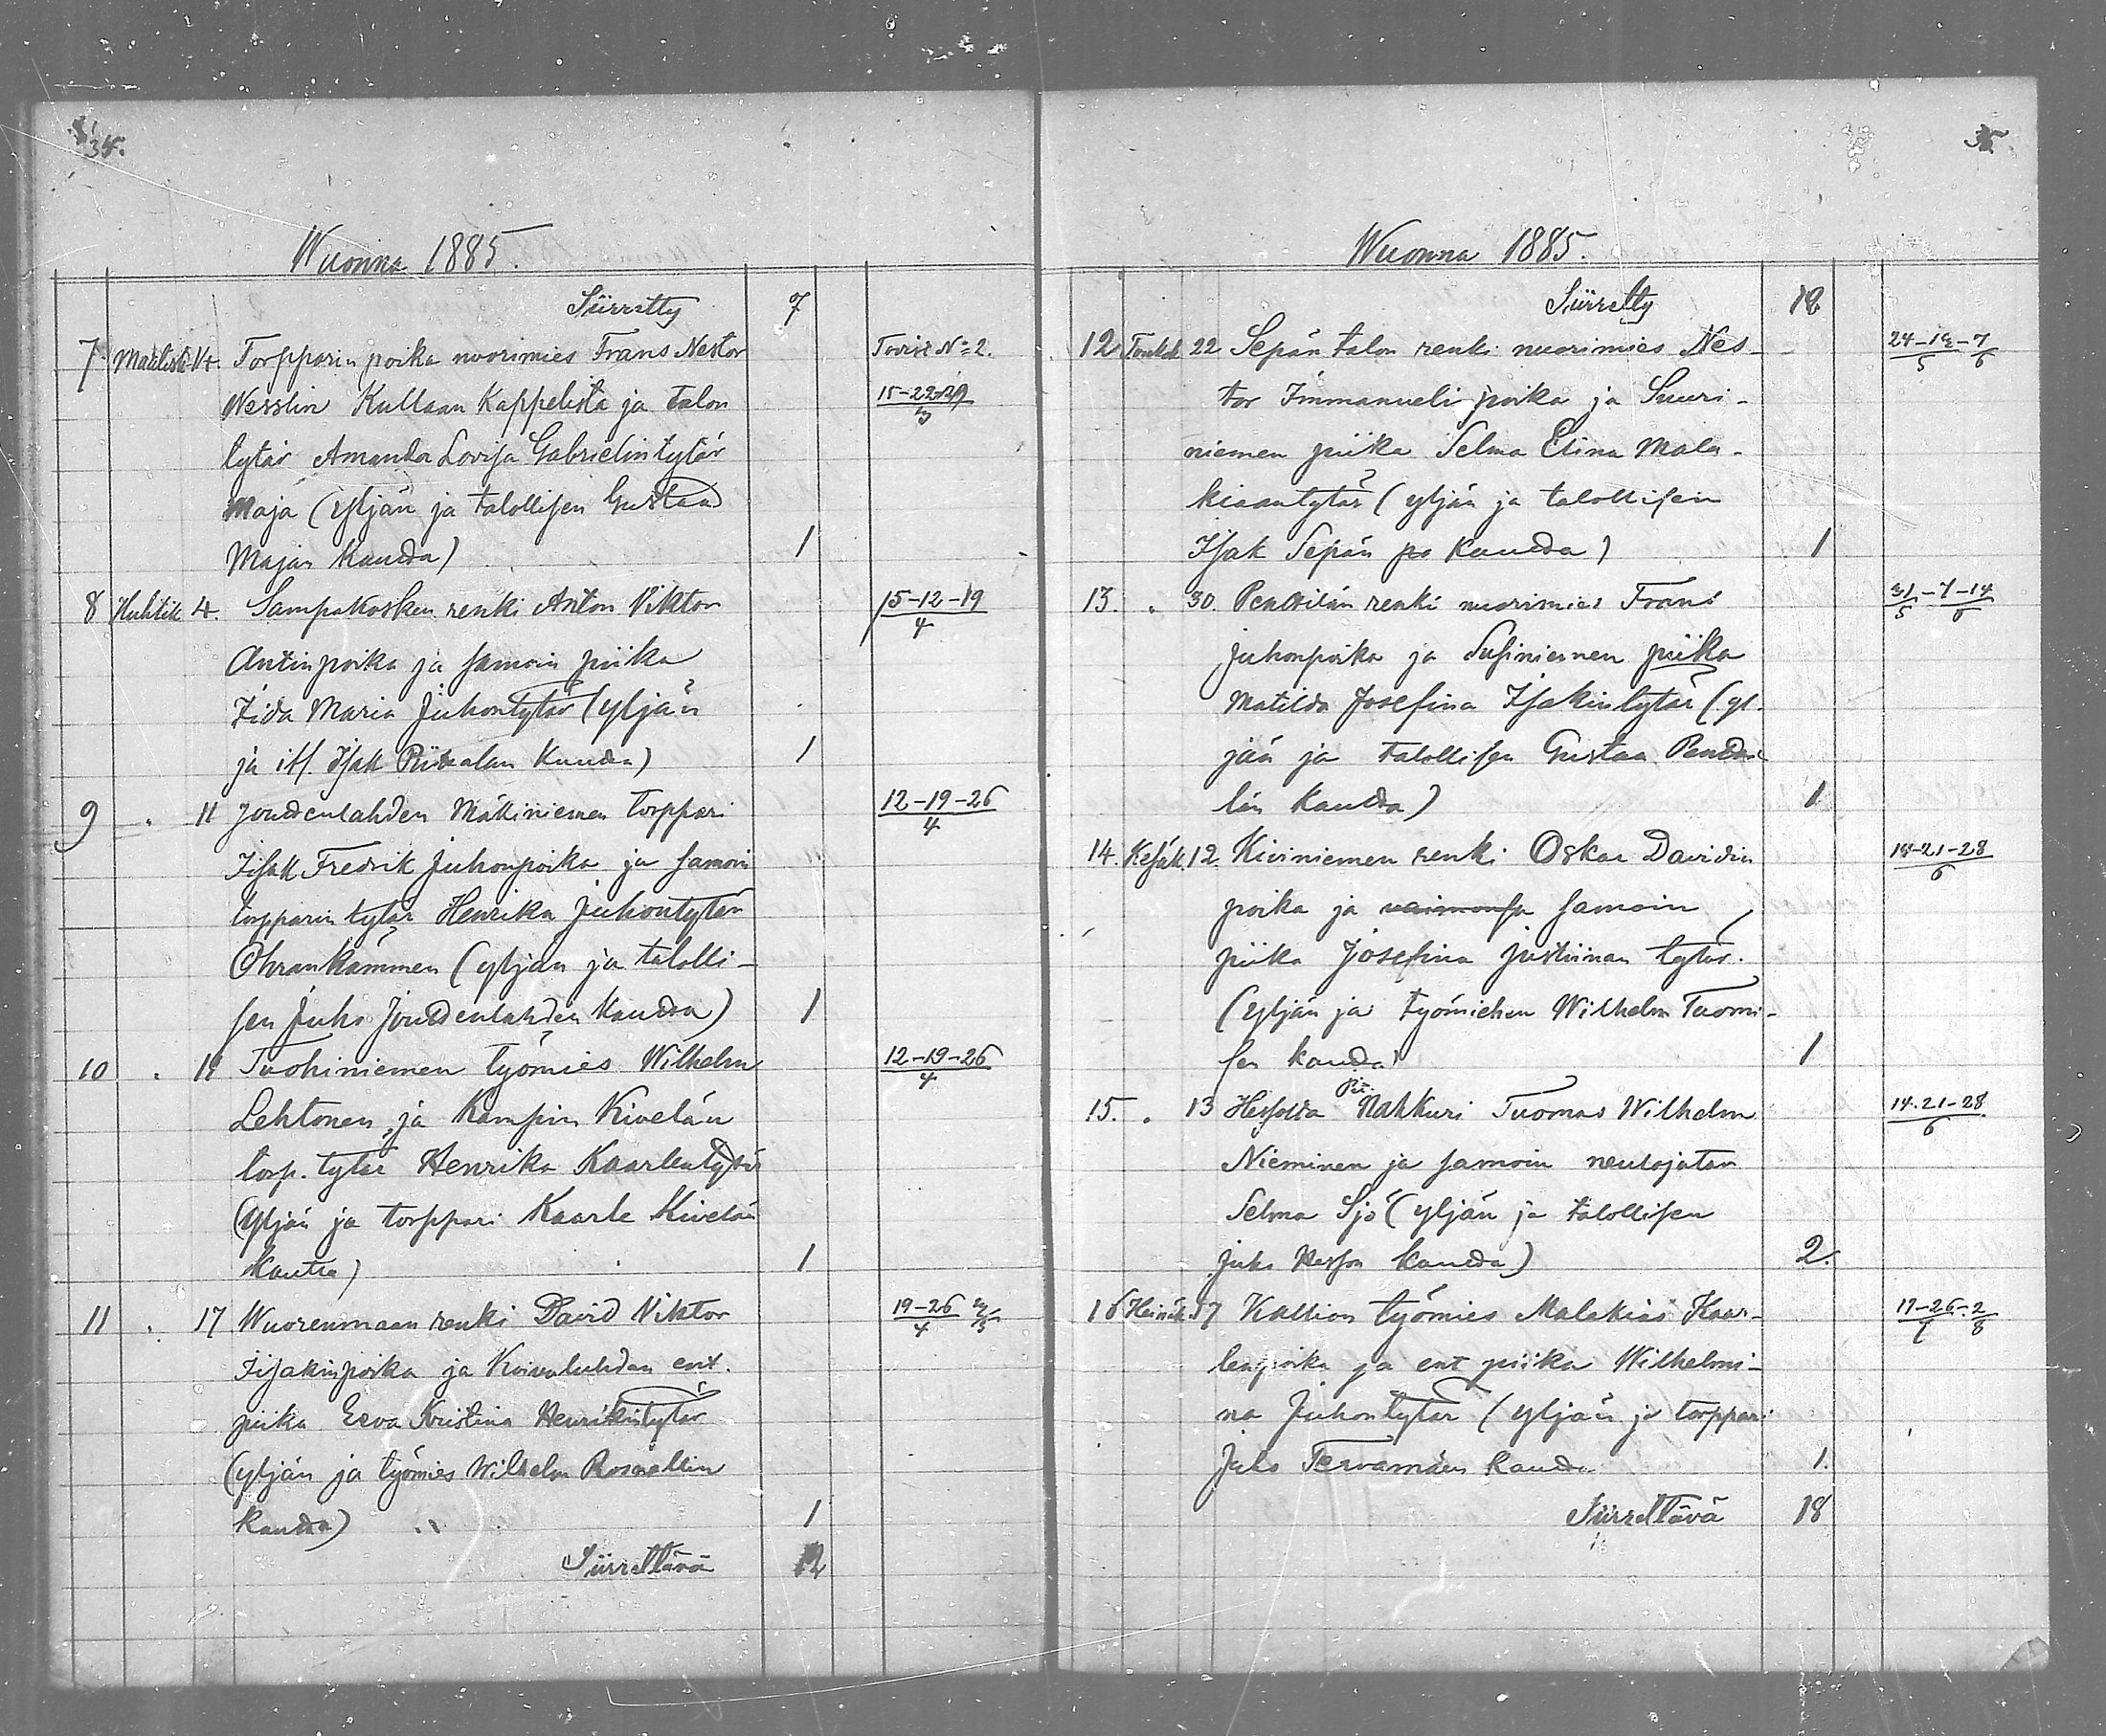 34.
Wuonna 1885.
Siirretty 7
7 Maalisk. 14. Torpparin poika nuorimies Frans Nestor Todist N:o 2.
Nesslin Kullaan Kappelista ja talon 15-22-29/3
tytär Amanda Lovisa Gabrielintytär
Maja (yljän ja talollisen Gustaa
Majan kautta) 1
8 Huhtik. 4. Sampakosken renki Anton Viktor 5-12-19/4
Antinpoika ja samoin piika
Iida Maria Juhontytär (yljän
ja itl. Isak kautta) 1
9 " 11 Jouttenlahden Mäkiniemen torppari 12-19-26/4
Iisak Fredrik Juhonpoika ja samoin
torpparin tytär Henrika Juhontytär
Ohrankämmen (yljän ja talolli-
sen Juho Jouttenlahden kautta) 1
10 " 11 Tuohiniemen työmies Wilhelm 12-19-26/4
Lehtonen ja Kampin Kivelän
torp. tytär Henrika Kaarlentytär
(yljän ja torppari Kaarle Kivelän
kautta) 1
11 " 17 Wuorenmaan renki David Viktor 19-26/4 3/5
Iisakinpoika ja Koivuluhdan ent.
piika Eeva Kristina Henrikintytär
(yljän ja työmies Wilhelm Rosvallin
kautta) 1
Siirrettävä 12
35
Wuonna 1885.
Siirretty 12
12 Toukok. 22 Sepän talon renki nuorimies Nes- 24-14/5-7/6
tor Immanueli poika ja Suuri-
niemen piika Selma Elina Mala-
kiaantytär (yljän ja talollisen
Isak Sepän po kautta) 1
13. " 30. Penttilän renki nuorimies Frans 31/5-7-14/6
Juhonpoika ja Susiniemen piika
Matilda Josefina Isakintytär (yl-
jän ja talollisen Gustaa Pentti-
län kautta) 1
14. Kesäk. 12. Kiviniemen renki Oskar Davidin 14-21-28/6
poika ja vaimonsa samoin
piika Josefina Justiinan tytär.
(yljän ja työmiehen Wilhelm Tuomi-
sen kautta) 1
15. " 13 Hessolta Nahkuri Tuomas Wilhelm 14.21-28/6
Nieminen ja samoin neulojatar
Selma Sjö (yljän ja talollisen
Juho Hesson kautta) 2.
16 Heinäk. 17 Kallion työmies Malakias Kaar- 19-26/7-2/8
lenpoika ja ent piika Wilhelmi-
na Juhontytär (yljän ja torppari
Juho Tervamäen kautta 1.
Siirrettävä 18